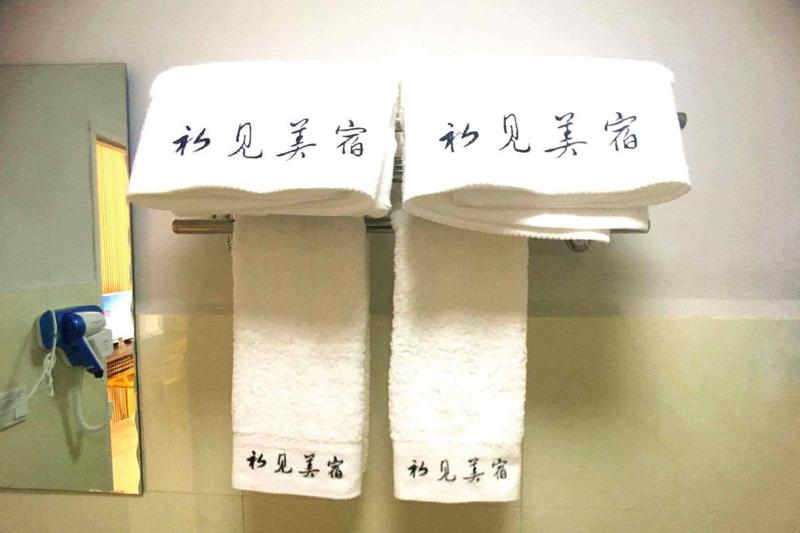 初见美宿
初见美宿
初见美宿
初见美宿